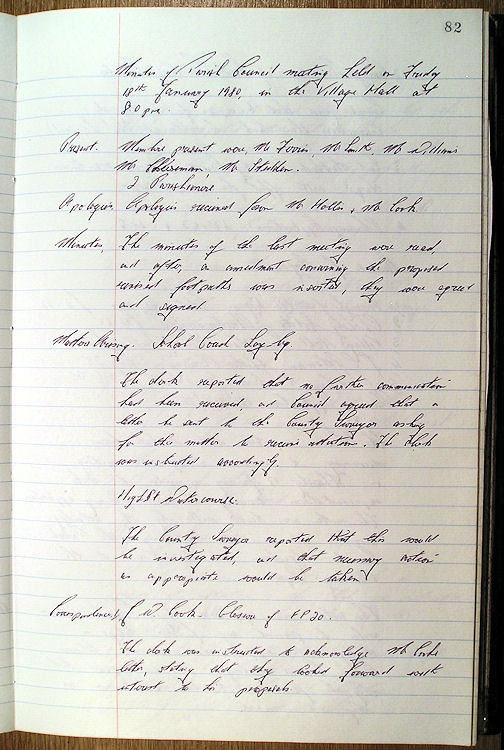 82
Minutes of Parish Council meeting held on Friday
18th January 1980, in the Village Hall at
8.0 pm.
Present. Members present were, Mr Ferris, Mr Smith, Mr Williams
Mr Cheeseman, Mr Sheldon.
2 Parishioners
Apologies Apologies received from Mr Hollis, Mr Cook.
Minutes, The minutes of the last meeting were read
and after, an amendment concerning the proposed
revised footpaths was inserted, they were agreed
and signed
Matters Arising. School Lay by
The clerk reported that no further communication
had been received, and Council agreed that a
letter be sent to the County Surveyor asking
for this matter to receive attention. The Clerk
was instructed accordingly.
High St Watercourse.
The County Surveyor reported that this would
be investigated, and that necessary action
as appropriate would be taken
Correspondence W. Cook. Closure of FP 20.
The clerk was instructed to acknowledge Mr Cooks
letter, stating that they looked forward with
interest to his proposals.